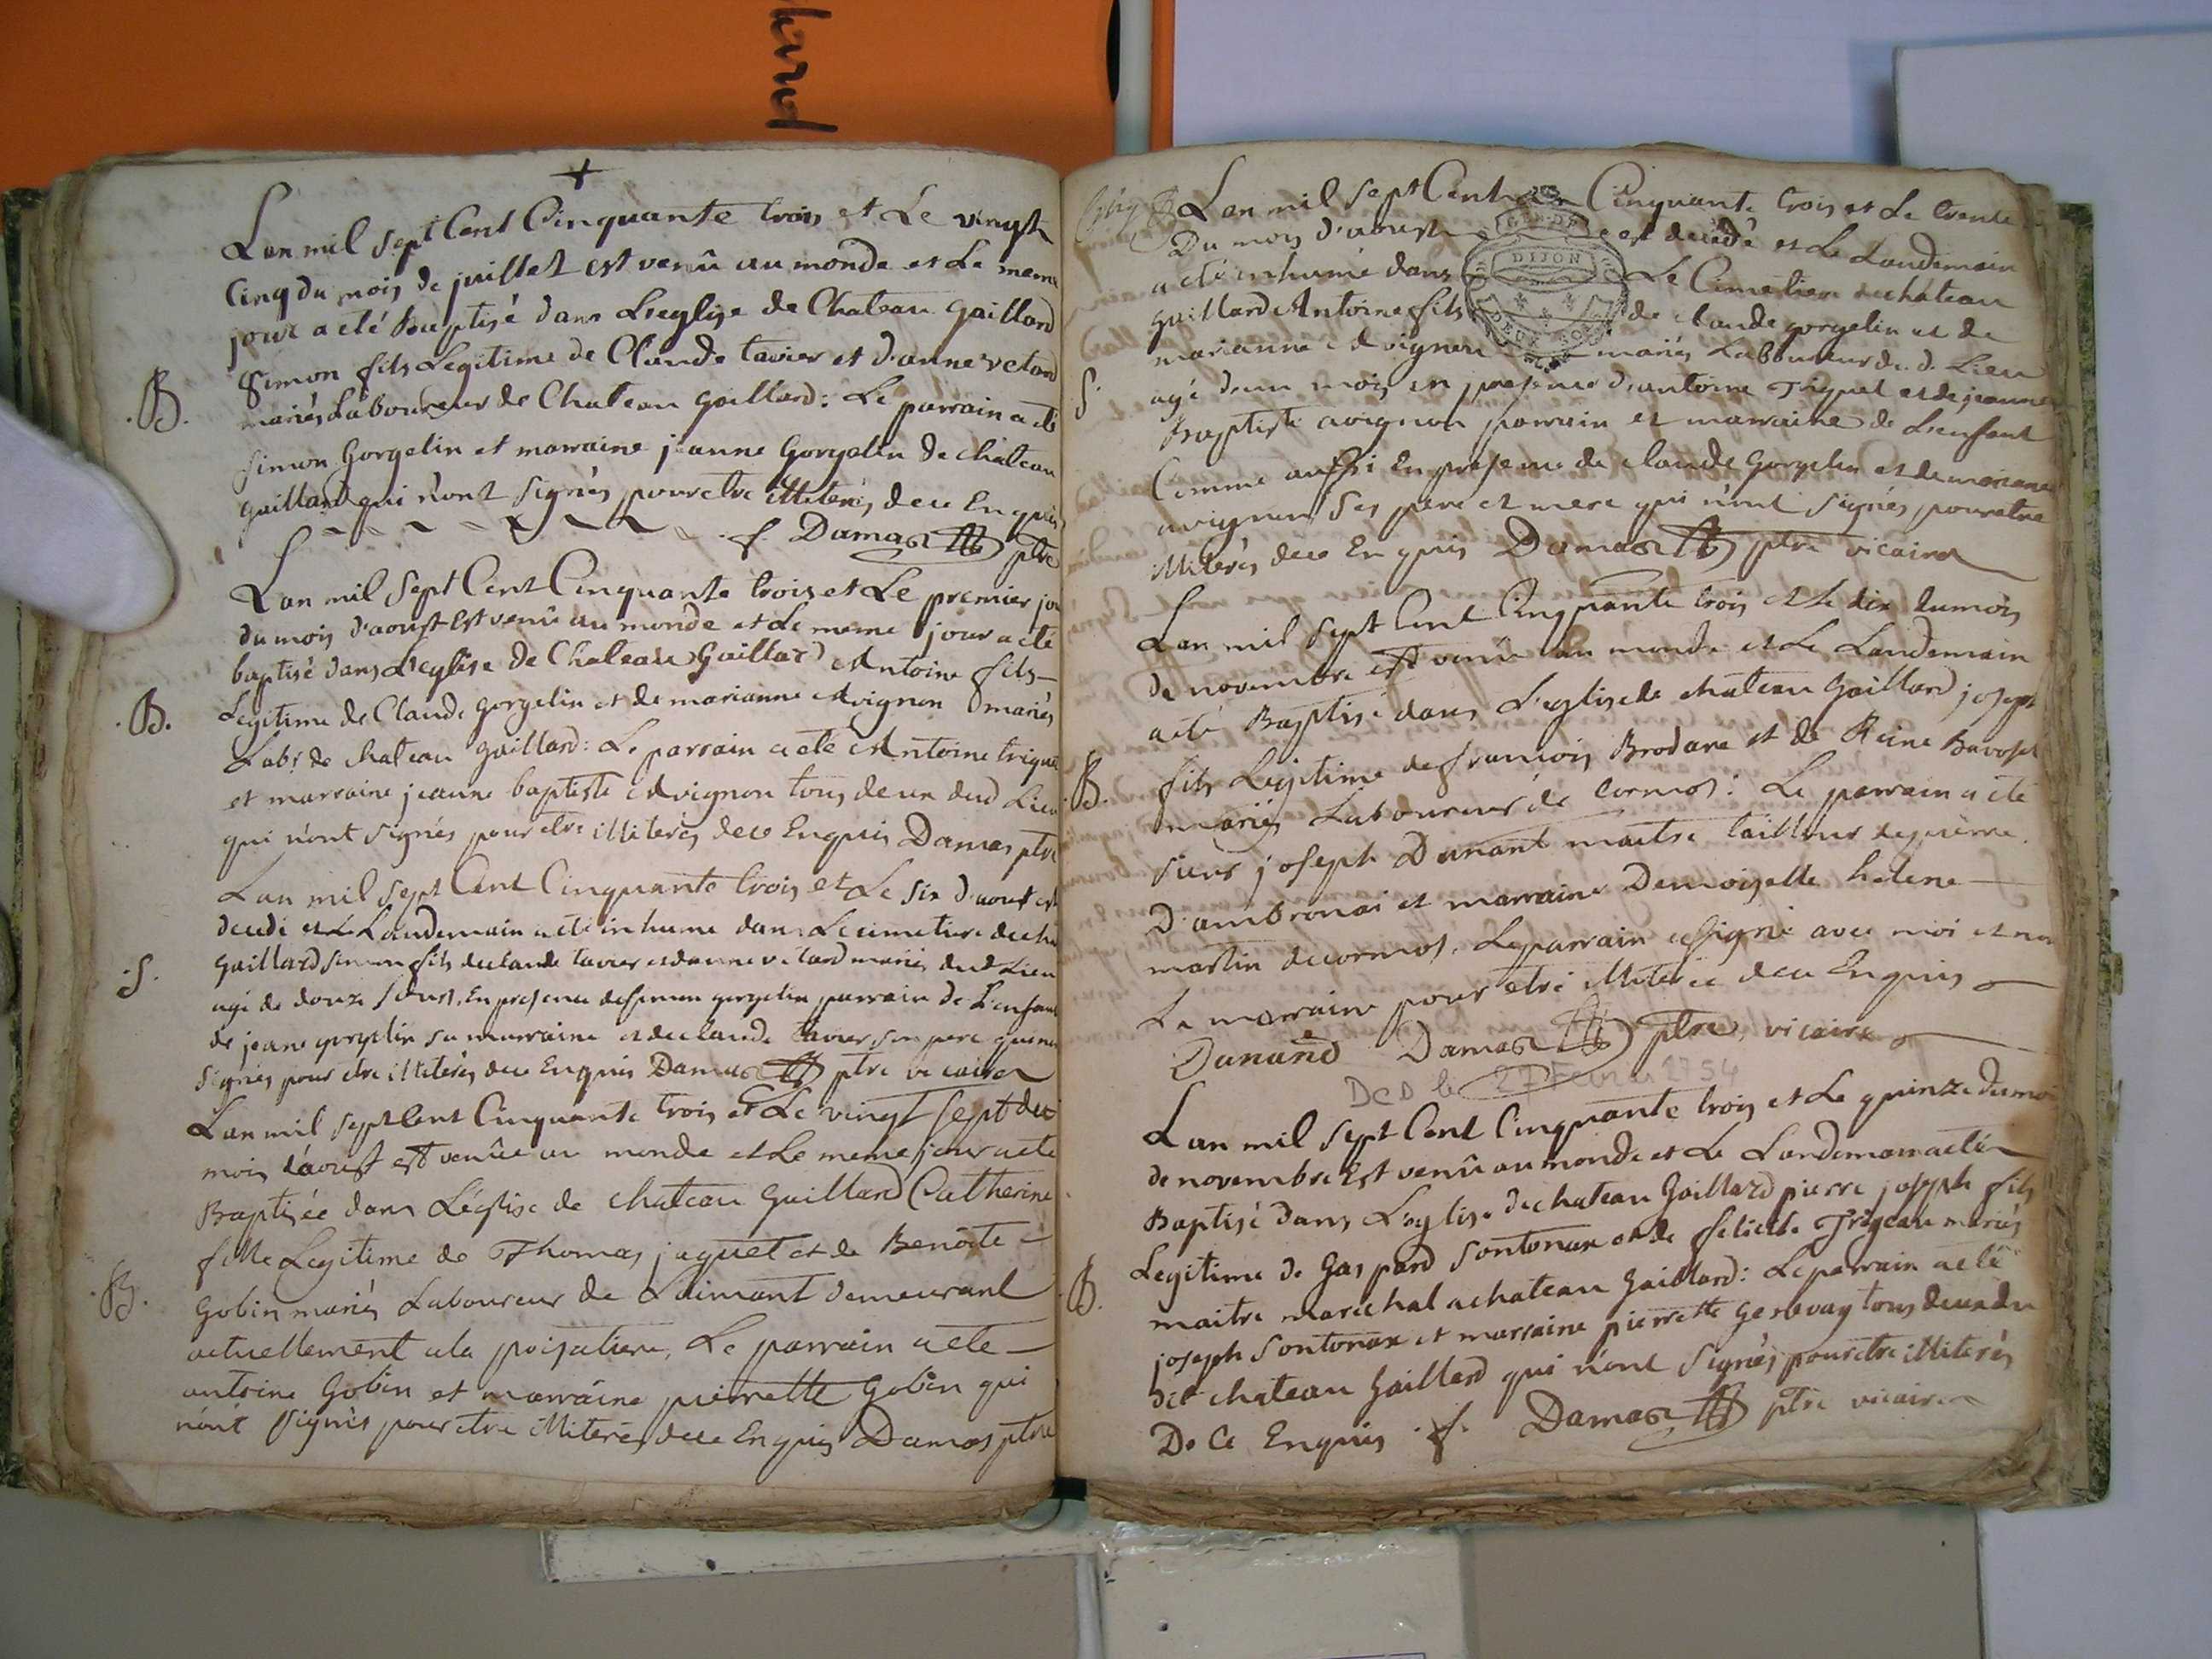 Lan mil sept Cent Cinquante trois et Le vingt
Cinq du mois de juillet est venû au monde et Le meme
jour a eté Baptisé dans L'eglise de Chateau gaillard
Simon fils Legitime de Claude tavier et d'anne vetard
B.
mariés Laboureur de Chateau gaillard: Le parrain a eté
simon Gorgelin et marraine jeanne Gorgelin de chateau
gaillard qui n'ont signés pour etre illiterés de ce Enquis
f. Damas ptre
Lan mil sept Cent Cinquante trois et Le premier jou
du mois d'aoust Est venû au monde et Le meme jour a eté
baptisé dans L'eglise de Chateau Gaillard Antoine fils
B.
Legitime de Claude gorgelin et de marianne Avignon mariés
Labr. de chateau gaillard: Le parrain a eté Antoine trique
et marraine jeanne baptiste Avignon tous deux dud Lieu
qui n'ont signés pour etre illiterés de ce Enquis Damas ptre
Lan mil sept Cent Cinquante trois et Le six d'aoust est
decedé et Le Landemain a eté inhumé dans Le cimetiere de cha
S.
Gaillard simon fils de claude tavier et d'anne vetard mariés dud Lieu
agé de douze jours, En presence de simon gorgelin parrain de L'enfant
de jeane gorgelin sa marraine et de claude tavier son pere qui n'on
signés pour etre illiterés de ce Enquis Damas ptre vicaire
Lan mil sept Cent Cinquante trois et Le vingt sept du
mois d'aoust est venûe au monde et Le meme jour a eté
Baptisée dans L'église de chateau Gaillard Catherine
fille Legitime de Thomas jaquet et de Benoite
B.
Gobin mariés Laboureur de Laimant demeurant
actuellement a la poisatiere, Le parrain a eté
antoine Gobin et marraine pierrette Gobin qui
n'ont signés pour etre illiterés de ce Enquis Damas ptre
Lan mil sept Cent Cinquante trois et Le trente
Du mois d'aoust est decédé et Le Landemain
a eté inhumé dans Le Cimetiere de chateau
DIJON
gaillard Antoine fils de claude gorgelin et de
DEUX SOLS
marianne Avignon mariés Laboureur du d. Lieu
S.
agé d'un mois en presence d'antoine Triquet et de jeanne
Baptiste avignon parrain et marraine de L'enfant
Comme aussi En presence de claude Gorgelin et de marianne
avignon ses pere et mere qui n'ont signés pour etre
illiterés de ce Enquis Damas ptre vicaire
Lan mil sept Cent Cinquante trois et Le dix du mois
de novembre est venû au monde et Le Landemain
a eté Baptisé dans L'eglise de chateau Gaillard joseph
B.
fils Legitime de francois Brodane et de Reine Bavoset
mariés Laboureur de Cormos: Le parrain a eté
sieur joseph Dunant maitre tailleur de pierre
D'ambronai et marraine Demoiselle helene
martin de cormos. Le parrain a signé avec moi et non
La marraine pour etre illiterée de ce Enquis
Dunand Damas ptre, vicaire
DCD le 27 Fevrier 1754
Lan mil sept Cent Cinquante trois et Le quinze du moi
de novembre Est venû au monde et Le Landemain a eté
Baptisé dans L'eglise de chateau Gaillard pierre joseph fils
Legitime de Gaspard Sontonax et de felicité Trigeau mariés
B.
maitre marechal a chateau Gaillard: Le parrain a eté
joseph Sontonax et marraine pierrette genevay tous deux du
dit chateau Gaillard qui n'ont signés pour etre illiterés
De Ce Enquis f. Damas ptre vicaire